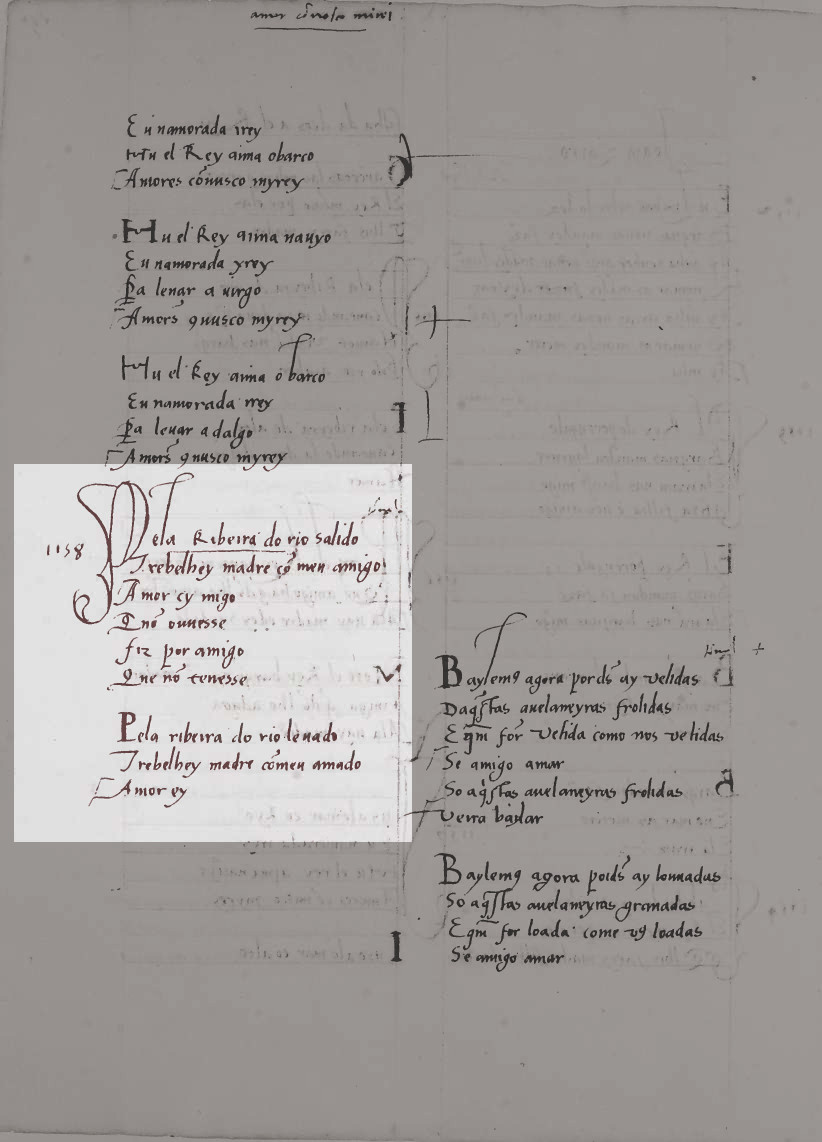 amor cõ uosco mirei
Eu namorada irey
Hu el Rey arma obarco
Amores cõuusco myrey
Hu el Rey arma nauyo
Eu namorada yrey
Pa leuar a uirgo
Amors̃ 9uusco myrey
Hu el Rey arma o barco
Eu namorada irey
Pa leuar a dalgo
Amors̃ 9uusco myrey
1158
Pela Ribeira do rio salido
Trebelhey madre cõ meu amigo
Amor ey migo
Q nõ ouuesse
fiz por amigo
Que nõ fezesse
Pela ribeira do rio leuado
Trebelhey madre cõmeu amado
Amor ey
Baylem9 agora por ds̃ ay uelidas
Daqstas auelaneyras frolidas
E q̃m for uelida como nos uelidas
Se amigo amar
So aqstas auelaneyras frolidas
Verra baylar
Baylem9 agora por ds̃ ay louuadas
So aqstas auelaneyras granadas
E q̃m for loada come u9 loadas
Se amigo amar